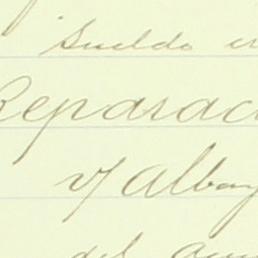 Sueldo en
Reparac
y Albañ
del